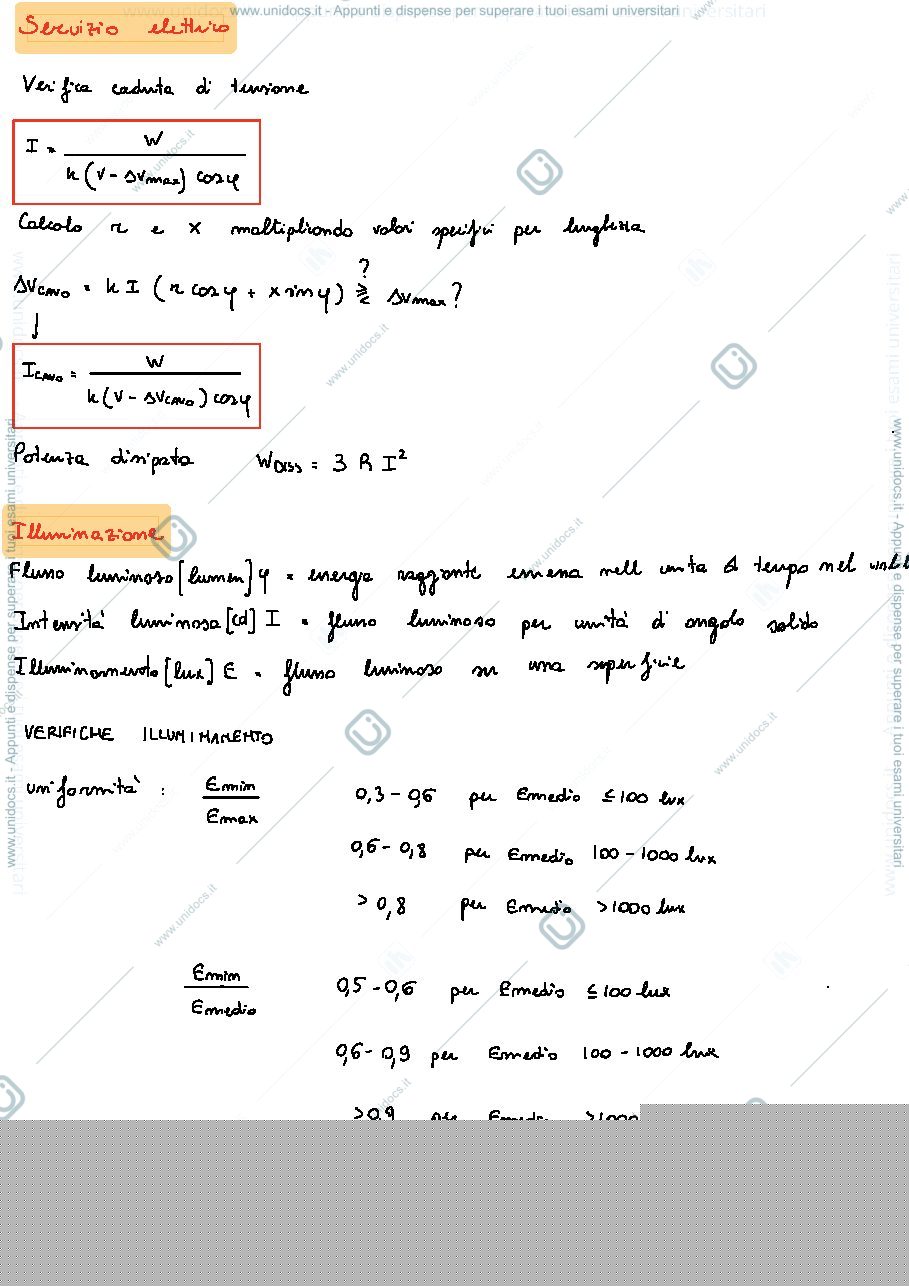 www.unidocs.it - Appunti e dispense per superare i tuoi esami universitari
Servizio elettrico
Verifica caduta di tensione
I = W / k (V - ΔVmax) cosφ
Calcolo r e x moltiplicando valori specifici per lunghezza
ΔVCAVO = k I (r cosφ + x sinφ) ⋛ ΔVmax ?
?
↓
ICAVO = W / k (V - ΔVCAVO) cosφ
Potenza dissipata WDISS = 3 R I²
Illuminazione
Flusso luminoso [lumen] φ = energia raggiante emessa nell unita di tempo nel
Intensità luminosa [cd] I = flusso luminoso per unità di angolo solido
Illuminamento [lux] E = flusso luminoso su una superficie
VERIFICHE ILLUMINAMENTO
uniformità : Emin / Emax 0,3 - 0,6 per Emedio ≤ 100 lux
0,6 - 0,8 per Emedio 100 - 1000 lux
> 0,8 per Emedio > 1000 lux
Emin / Emedio 0,5 - 0,6 per Emedio ≤ 100 lux
0,6 - 0,9 per Emedio 100 - 1000 lux
>0,9 per Emedio >1000
www.unidocs.it - Appunti e dispense per superare i tuoi esami universitari
www.unidocs.it - Appunti e dispense per superare i tuoi esami universitari